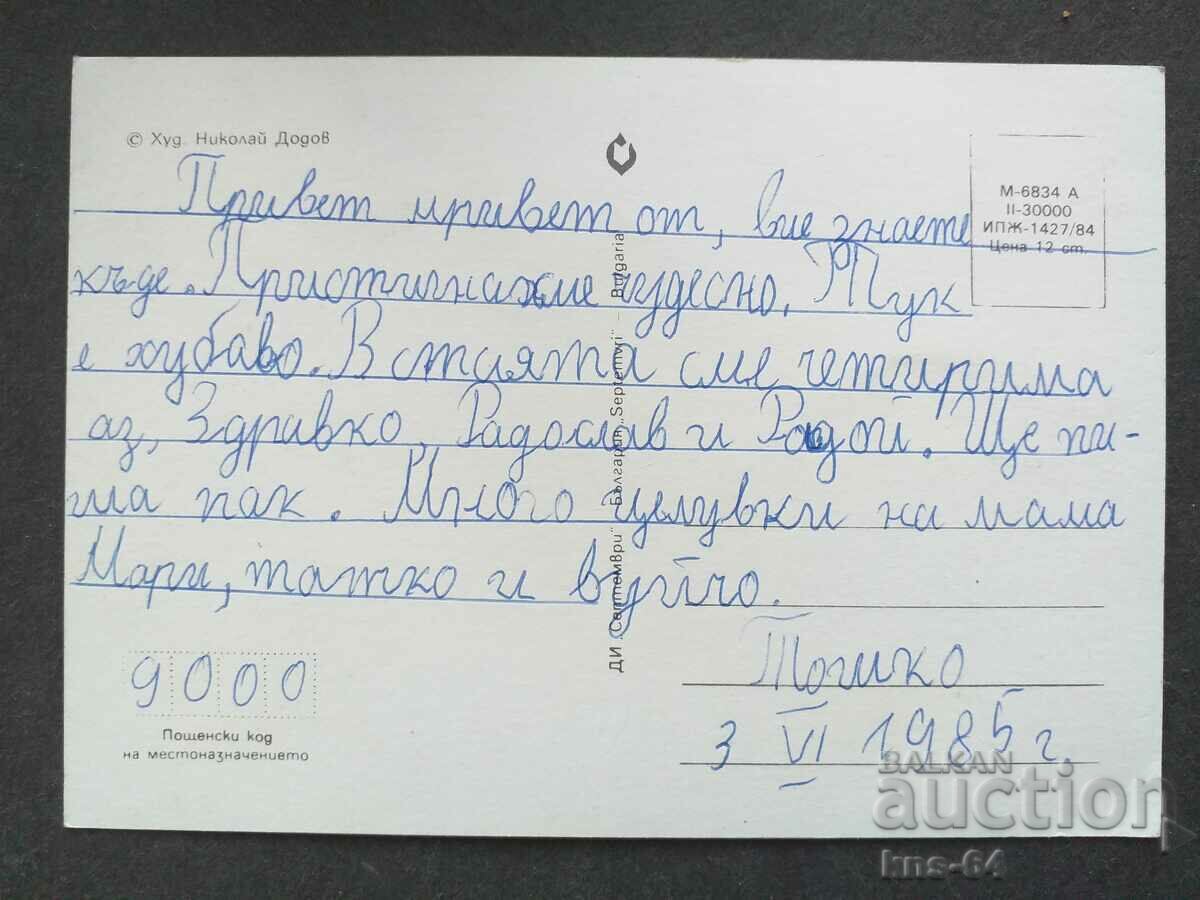 © Худ. Николай Додов
М-6834 А
II-30000
ИПЖ-1427/84
Цена 12 ст.
Привет мривет от, вие знаете
къде. Пристигнахме чудесно. Тук
е хубаво. В стаята сме четирима
аз, Здравко, Радослав и Радой. Ще пи-
ша пак. Много целувки на мама
Мари, татко и вуйчо.
Тошко
3 VI 1985 г.
9000
Пощенски код
на местоназначението
ДИ „Септември" – България „Septemvri" – Bulgaria
BALKAN
auction
kns-64